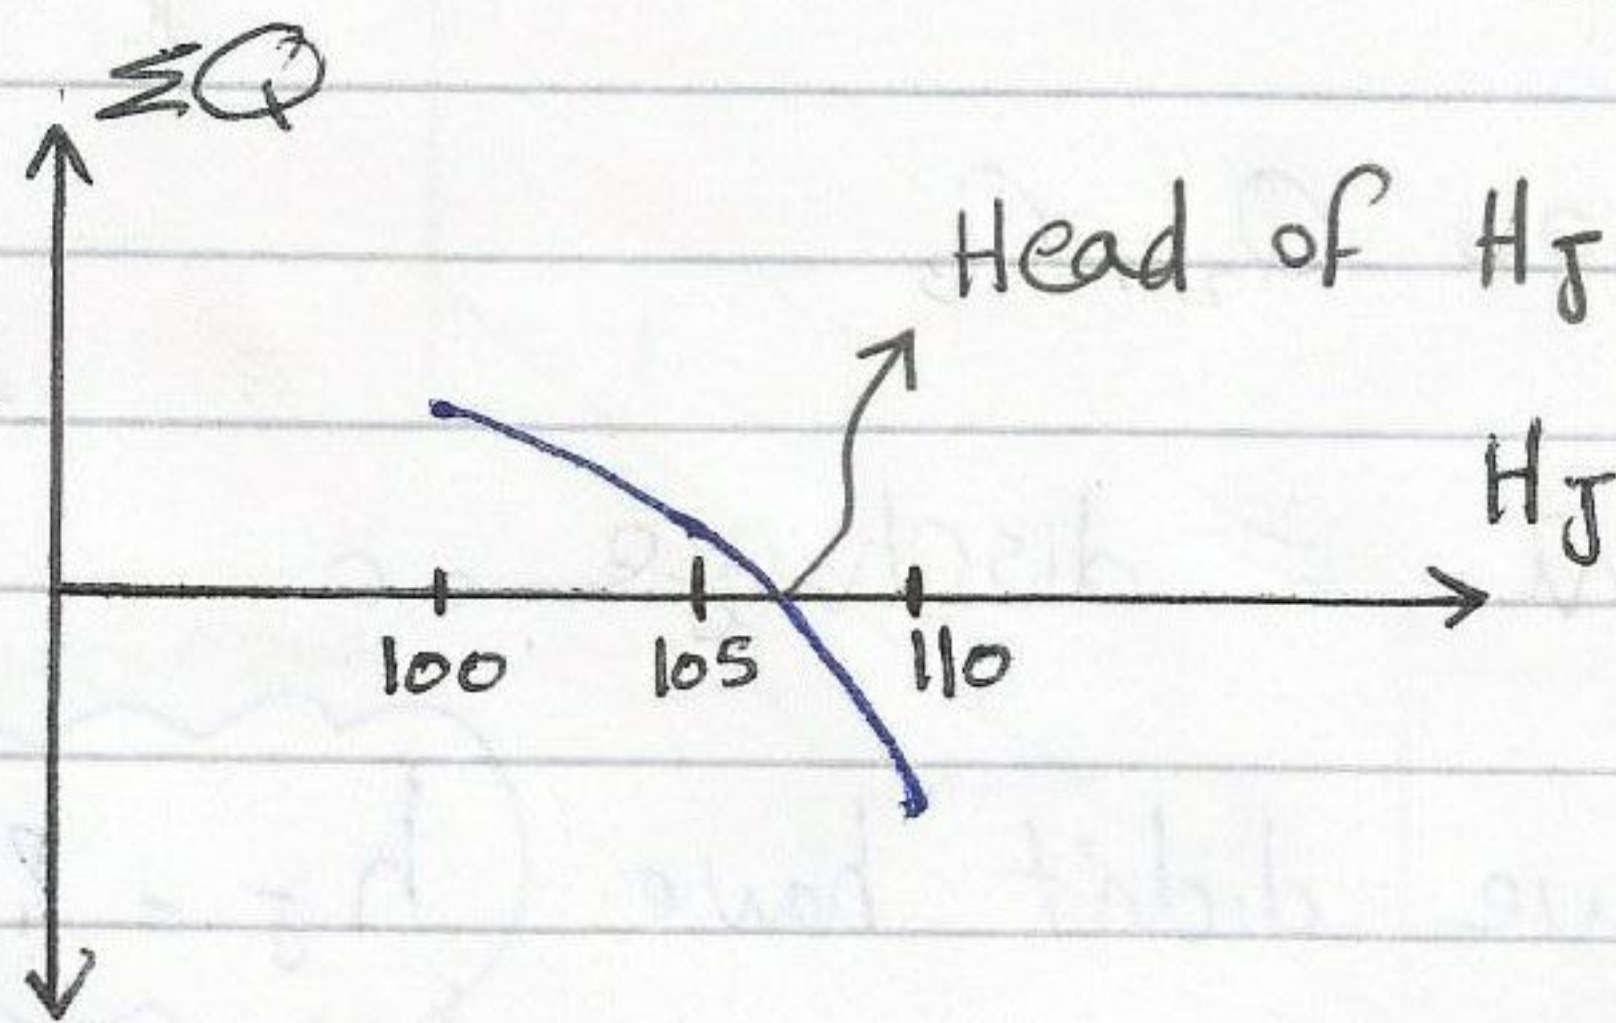 ΣQ
Head of HJ
HJ
100 105 110